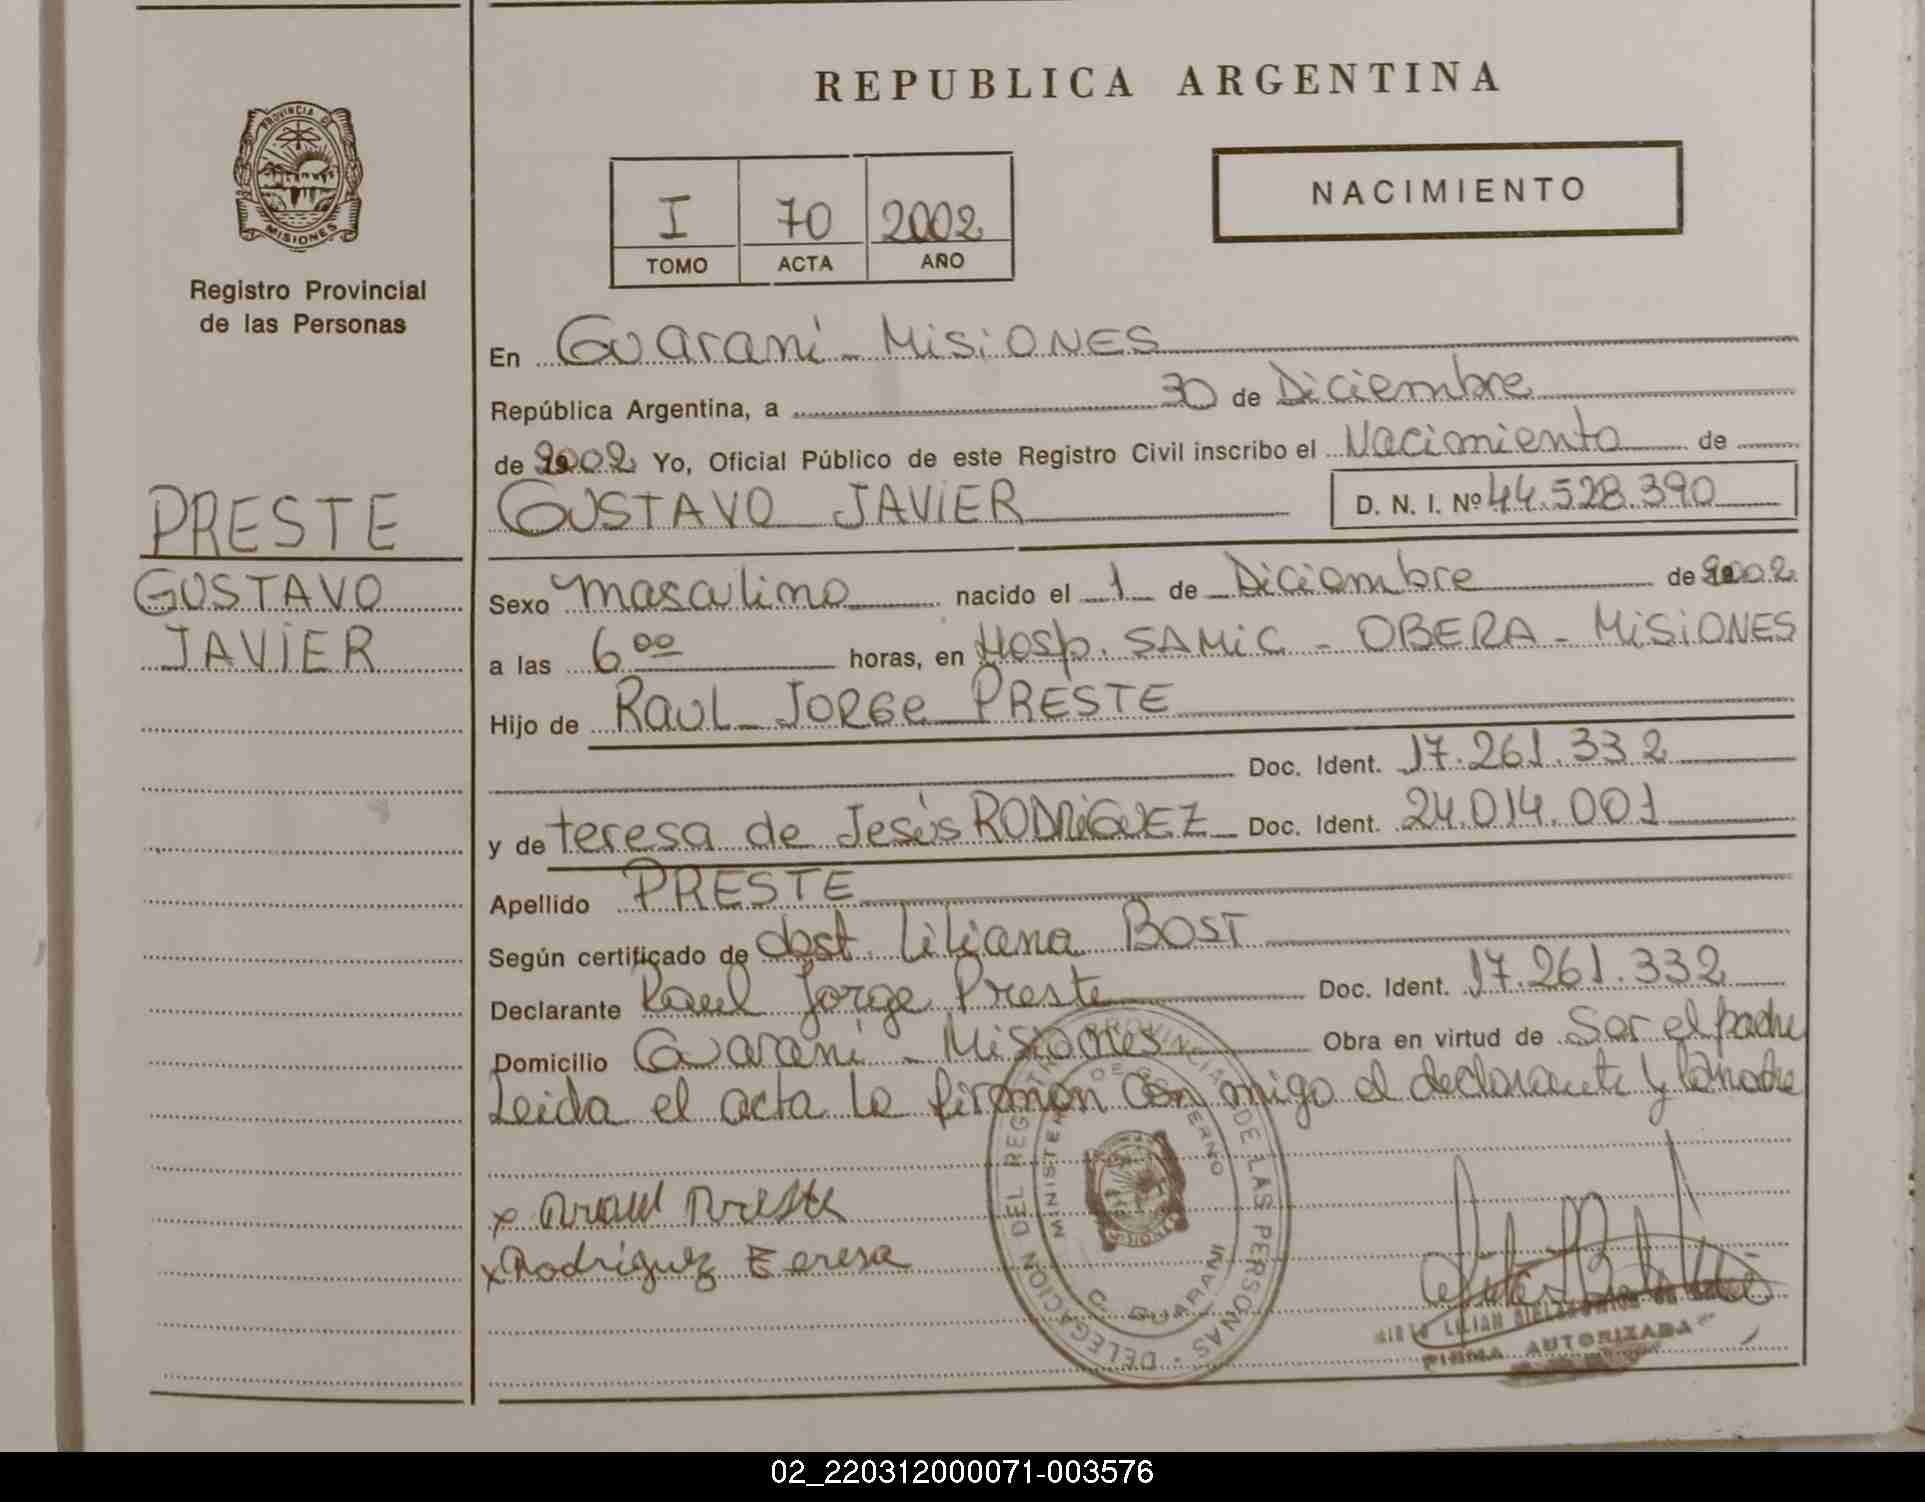 REPUBLICA ARGENTINA
PROVINCIA DE
MISIONES
Registro Provincial
de las Personas
NACIMIENTO
I 70 2002
TOMO ACTA AÑO
En Guarani - MISIONES
República Argentina, a 30 de Diciembre
de 2002 Yo, Oficial Público de este Registro Civil inscribo el Nacimiento de
PRESTE
GUSTAVO JAVIER D. N. I. Nº 44.528.390
GUSTAVO
JAVIER
Sexo masculino nacido el 1 de Diciembre de 2002
a las 6 00 horas, en Hosp. SAMIC - OBERA - MISIONES
Hijo de RAUL JORGE PRESTE
Doc. Ident. 17.261.332
y de teresa de Jesús RODRIGUEZ Doc. Ident. 24.014.001
Apellido PRESTE
Según certificado de obst. Liliana BOST
Declarante Raul Jorge Preste Doc. Ident. 17.261.332
Domicilio Guarani - Misiones Obra en virtud de Ser el padre
Leida el acta la firman con migo el declarante y la madre
x Raul Preste
x Rodriguez Teresa
DELEGACION DEL REGISTRO PROVINCIAL DE LAS PERSONAS
MINISTERIO DE GOBIERNO
C. GUARANI
MISIONES
LILIAN
FIRMA AUTORIZADA
02_220312000071-003576